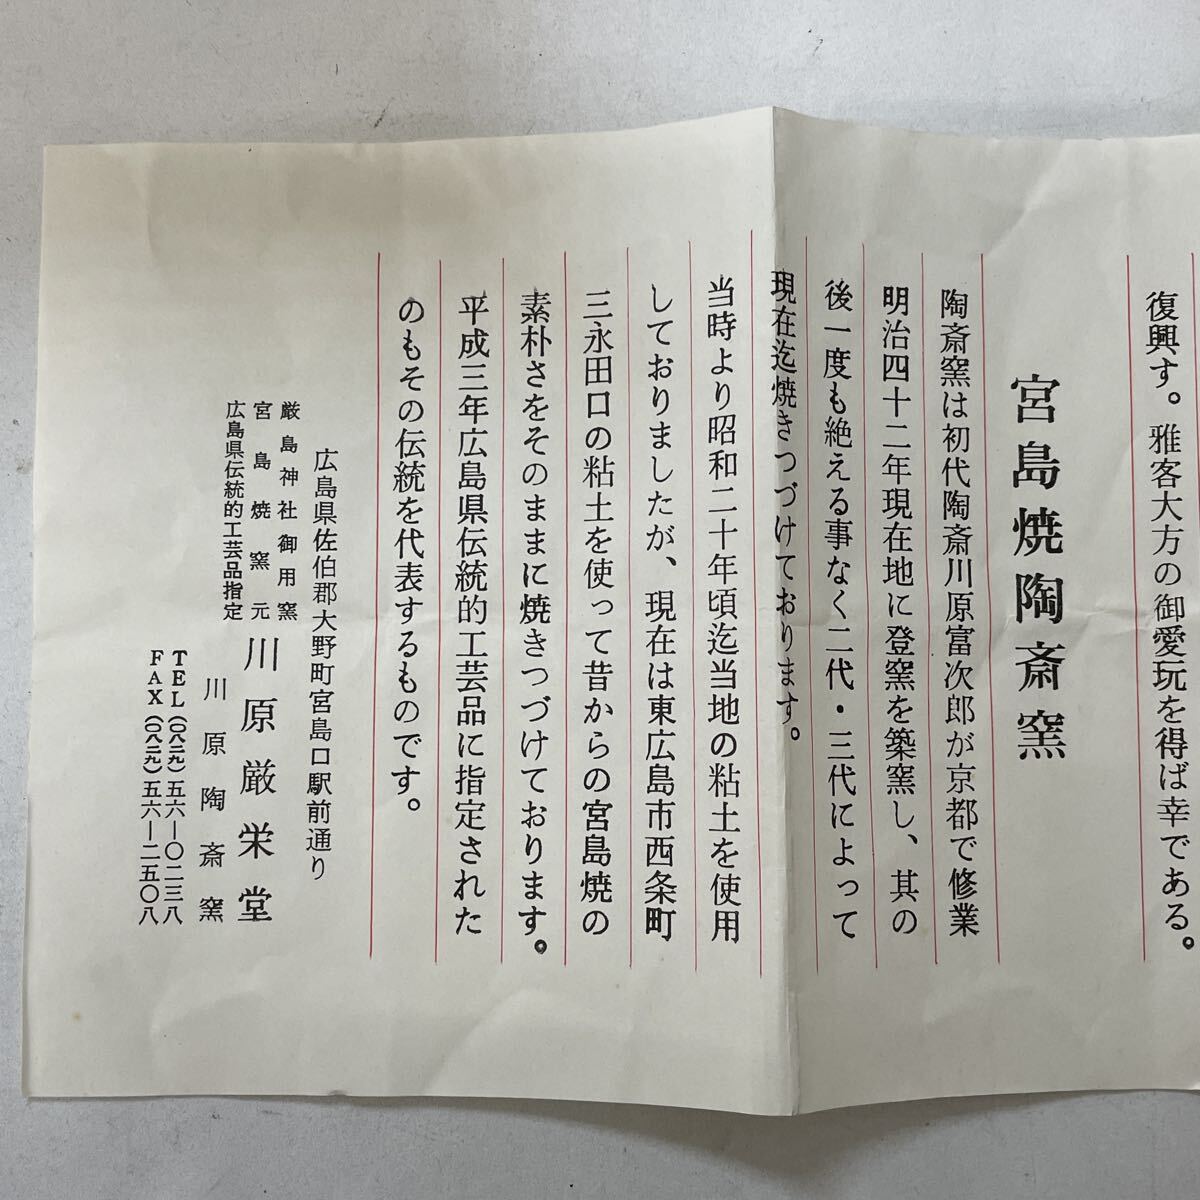 復興す。雅客大方の御愛玩を得ば幸である。
宮島焼陶斎窯
陶斎窯は初代陶斎川原富次郎が京都で修業
明治四十二年現在地に登窯を築窯し、其の
後一度も絶える事なく二代・三代によって
現在迄焼きつづけております。
当時より昭和二十年頃迄当地の粘土を使用
しておりましたが、現在は東広島市西条町
三永田口の粘土を使って昔からの宮島焼の
素朴さをそのままに焼きつづけております。
平成三年広島県伝統的工芸品に指定された
のもその伝統を代表するものです。
広島県佐伯郡大野町宮島口駅前通り
厳島神社御用窯
宮島焼窯元
広島県伝統的工芸品指定
川原厳栄堂
川原陶斎窯
TEL(〇八二九)五六―〇二三八
FAX(〇八二九)五六―二五〇八